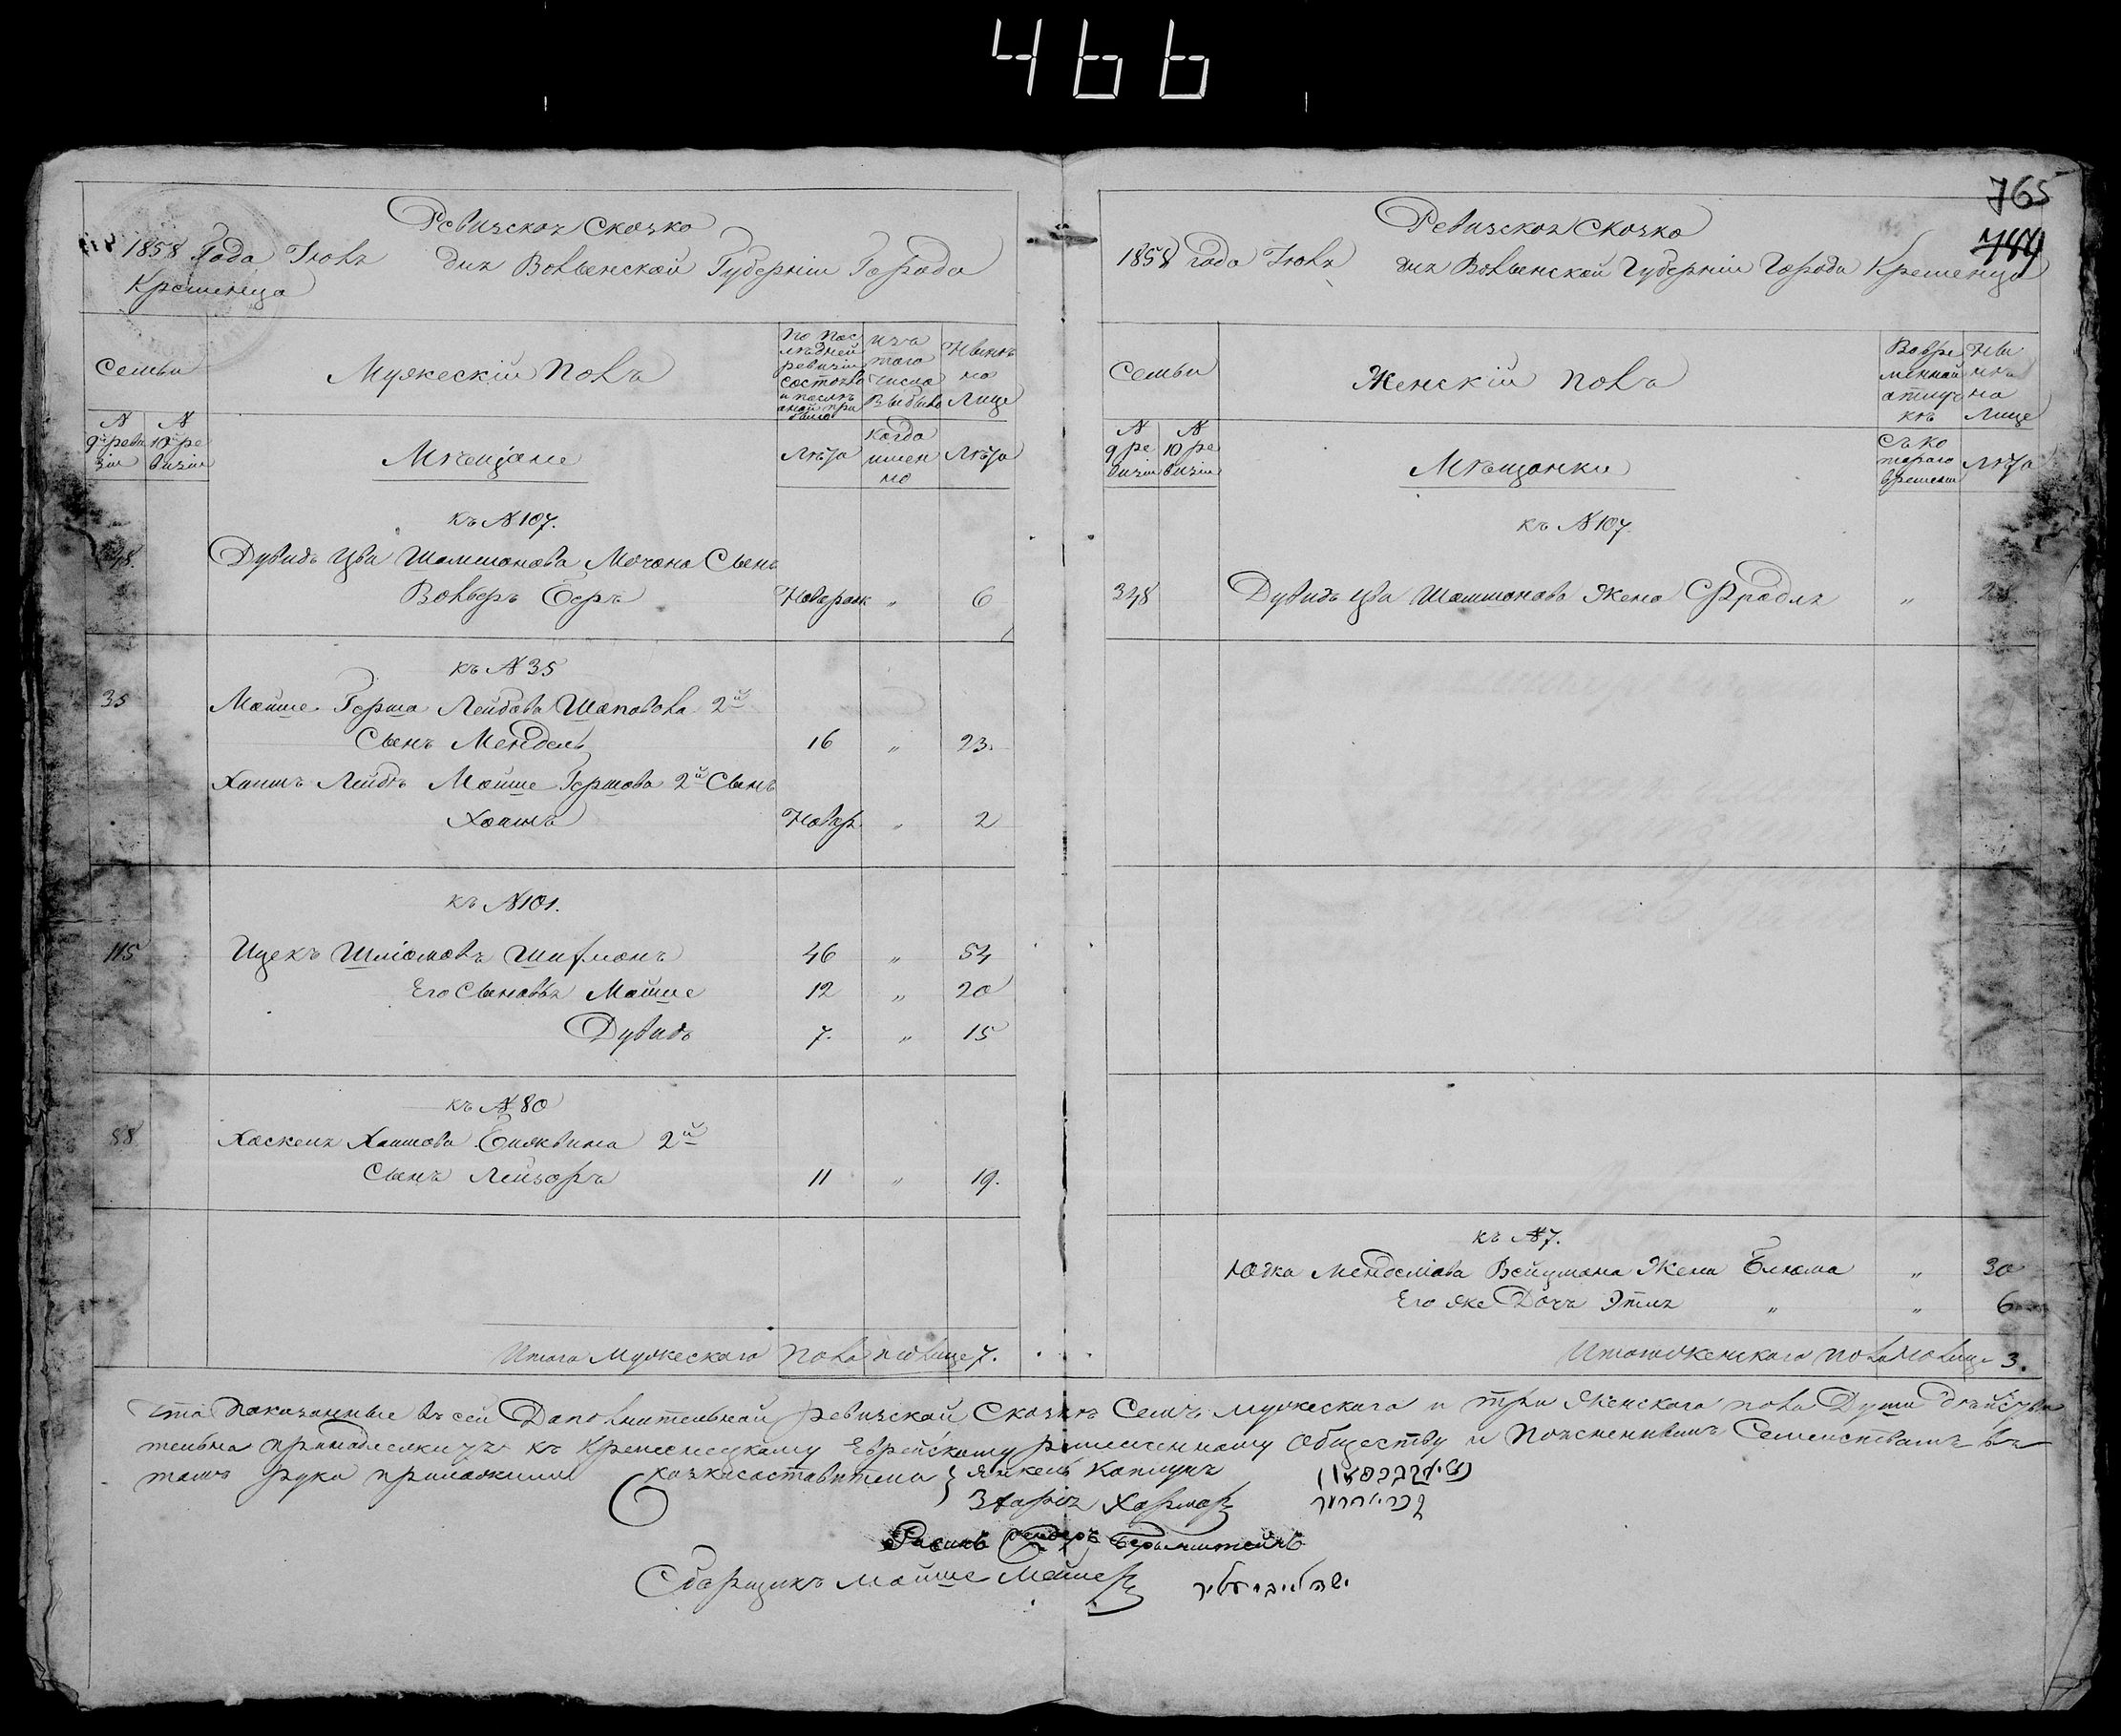 466
765
744
Ревизская Сказка
1858 Года Июля дня Волынской Губерніи Города
Кременца
Семьи
Мужескій Полъ
По послѣдней ревизіи состояло и послѣ оной прибыло
изъ того числа выбыло
Нынѣ на Лице
№ 9й ревизіи
№ 10й ревизіи
Мѣщане
Лѣта
когда именно
Лѣта
къ № 107.
348 Дувидъ Цви Шамшонова Мочана Сынъ
Вольверъ Беръ Новорож „ 6
къ № 35
35 Мойше Герша Лейбова Шаповола 2й
Сынъ Мендель 16 „ 23.
Хаимъ Лейбъ Мойше Гершова 2й Сынъ
Хаимъ Новор. „ 2
къ № 101.
115 Ицекъ Шліомовъ Шифманъ 46 „ 54
Его Сыновья Мойше 12 „ 20
Дувидъ 7. „ 15
къ № 80
88 Хаскель Хаимова 2й
Сынъ Лейзоръ 11 „ 19.
Итого мужескаго пола на лице 7.
Ревизская Сказка
1858 года Июля дня Волынской Губерніи Города Кременца
Семьи
Женскій полъ
Во временной отлучкѣ
Нынѣ на Лице
№ 9 ревизіи
№ 10 ревизіи
Мѣщанки
Съ котораго времени
Лѣта
къ № 107.
348 Дувидъ Цви Шамшонова Жена Фрадля „
къ № 7.
Юдка Менделіова Вейцмана Жена Блюма „ 30
Его же Дочь Этля „ „ 6
Итого женскаго пола на лице 3.
Что показанные въ сей Дополнительной ревизской Сказкѣ Семь мужескаго и три Женскаго пола Души дѣйстви
тельно принадлежатъ къ Кременецкому Еврейскому Обществу и Семействамъ въ
томъ руки приложили Сказкосоставители } Янкель Каплунъ
Харма
Бернштейнъ
Сборщикъ Мойше Мейле